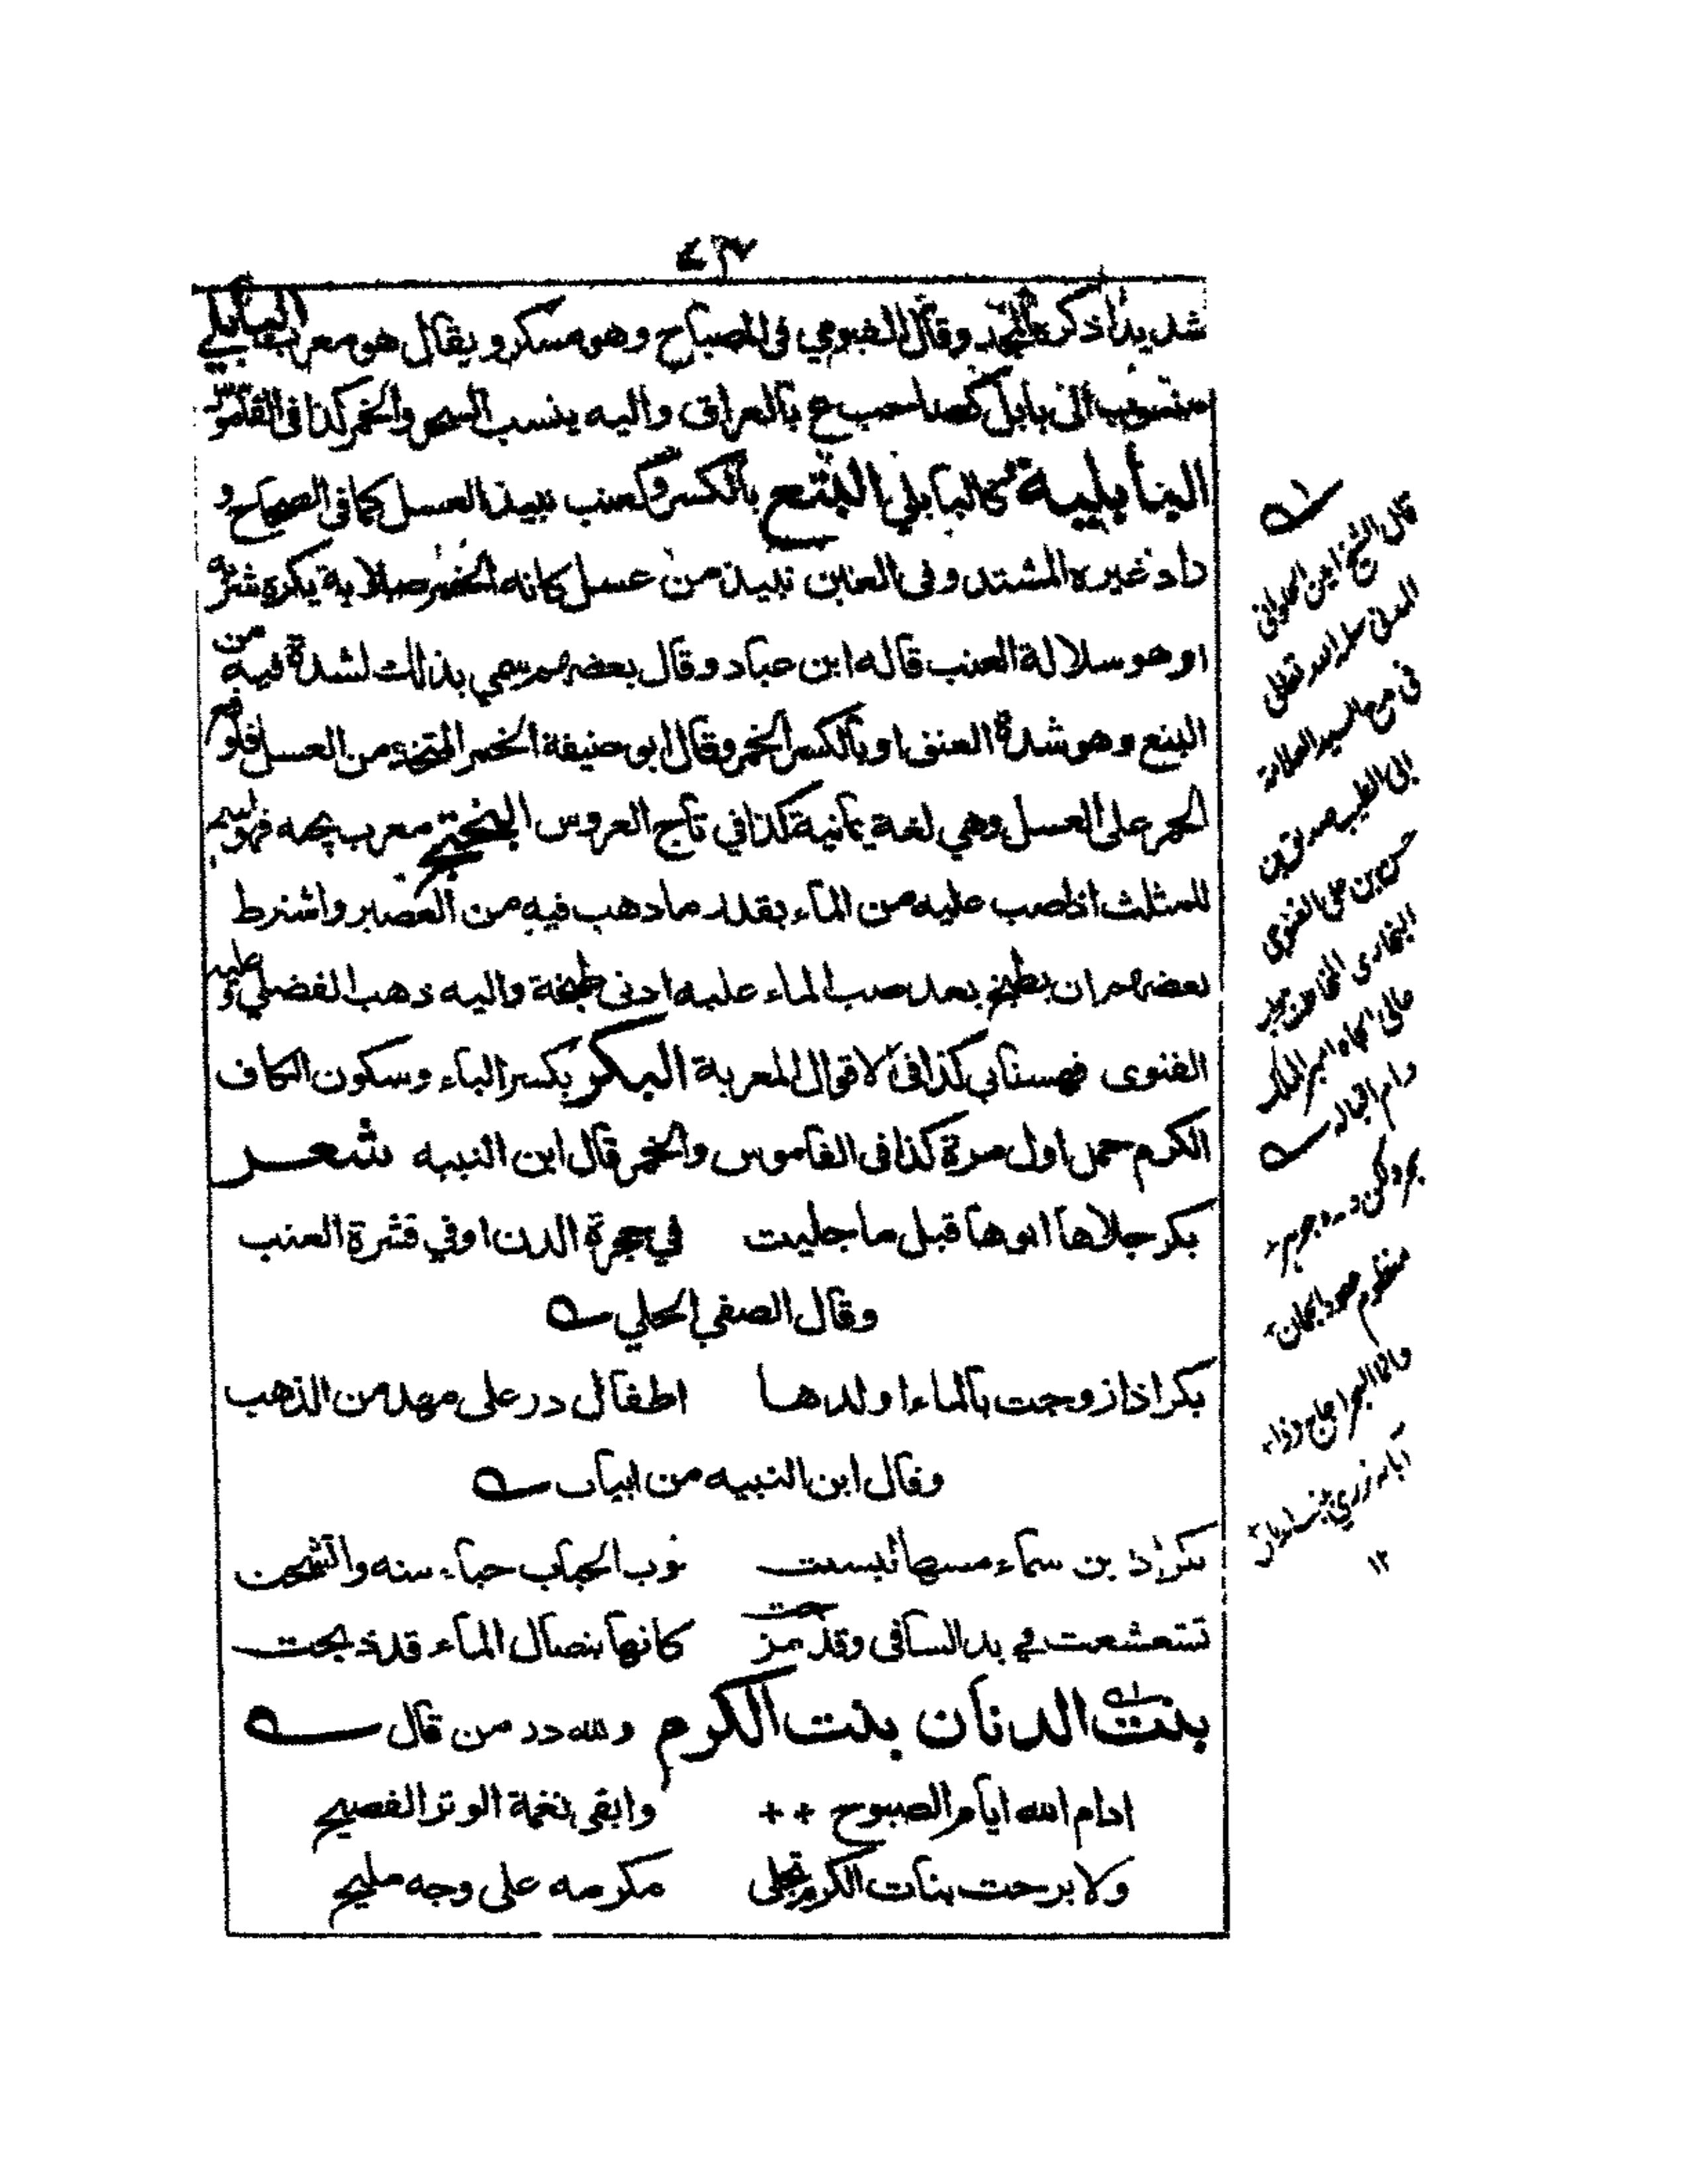 شديدا ذكره المجد وقال الفيومي فى المصباح وهو مسكر ويقال هو معرب البابلي
منسوب الى بابل كصاحب ع بالعراق واليه ينسب السحر والخمر كذا فى القاموس
البابلية هى البابلي البتع بالكسر وكعنب نبيذ العسل كما فى الصحاح و
زاد غيره المشتد وفى العين نبيذ من عسل كانه الخمر صلابة يكره شربه
او هو سلالة العنب قاله ابن عباد وقال بعضهم سمي بذلك لشدة فيه من
البتع وهو شدة العنق او بالكسر الخمر وقال ابو حنيفة الخمر المتخذ من العسل فاوقع
الخمر على العسل وهي لغة يمانية كذا في تاج العروس البختج معرب پخته فهو اسم
للمثلث اذا صب عليه من الماء بقدر ما ذهب فيه من العصير واشترط
بعضهم ان يطبخ بعد صب الماء عليه ادنى طبخة واليه ذهب الفضلي وعليه
الفتوى قهستاني كذا فى الاقوال المعربة البكر بكسر الباء وسكون الكاف
الكرم حمل اول مرة كذا فى القاموس والخمر قال ابن النبيه شعر
بكر جلاها ابوها قبل ما جليت في حجرة الدن او في قشرة العنب
وقال الصفي الحلي
بكر اذا زوجت بالماء اولدها اطفال در على مهد من الذهب
وقال ابن النبيه من ابيات
بكر اذ بن سماء مسها لبست ثوب الحباب حياء منه واتشحت
تشعشعت في يد الساقى وقد مزجت كانها بنصال الماء قد ذبحت
بنت الدنان بنت الكرم ولله در من قال
ادام الله ايام الصبوح ++ وابقى نغمة الوتر الفصيح
ولا برحت بنات الكرم تجلى مكرمه على وجه مليح
قال الشيخ امين الحلوانى
المدنى سلمه الله تعالى
فى مدح السيد العلامة
ابى الطيب صديق بن
حسن بن على القنوجى
البخارى
دام اقباله
١٢